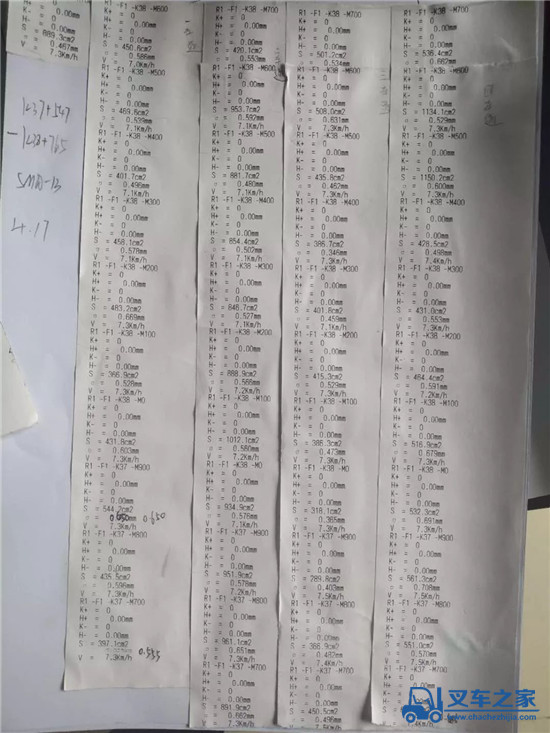 H- = 0.00mm
S = 889.3cm2
σ = 0.467mm
V = 7.3Km/h
1237+547
SMA-13
4.17
R1 -F1 -K38 -M600
K+ = 0
H+ = 0.00mm
K- = 0
H- = 0.00mm
S = 450.6cm2
σ = 0.586mm
V = 7.0Km/h
R1 -F1 -K38 -M500
K+ = 0
H+ = 0.00mm
K- = 0
H- = 0.00mm
S = 469.6cm2
V = 7.1Km/h
R1 -F1 -K38 -M400
K+ = 0
H+ = 0.00mm
K- = 0
H- = 0.00mm
S = 401.7cm2
σ = 0.496mm
V = 7.1Km/h
R1 -F1 -K38 -M300
K+ = 0
H+ = 0.00mm
K- = 0
H- = 0.00mm
S = 458.1cm2
σ = 0.578mm
V = 7.1Km/h
R1 -F1 -K38 -M200
K+ = 0
H+ = 0.00mm
K- = 0
H- = 0.00mm
S = 483.2cm2
σ = 0.669mm
V = 7.3Km/h
R1 -F1 -K38 -M100
K+ = 0
H+ = 0.00mm
K- = 0
H- = 0.00mm
S = 366.9cm2
σ = 0.528mm
V = 7.3Km/h
R1 -F1 -K38 -M0
K+ = 0
H+ = 0.00mm
K- = 0
H- = 0.00mm
S = 431.8cm2
σ = 0.603mm
V = 7.3Km/h
R1 -F1 -K37 -M900
K+ = 0
H+ = 0.00mm
K- = 0
H- = 0.00mm
S = 544.2cm2
0.650
V = 7.3Km/h
R1 -F1 -K37 -M800
K+ = 0
H+ = 0.00mm
K- = 0
H- = 0.00mm
σ = 0.598mm
V = 7.3Km/h
R1 -F1 -K37 -M700
K+ = 0
H+ = 0.00mm
K- = 0
H- = 0.00mm
S = 397.1cm2
0.555
V = 7.3Km/h
R1 -F1 -K38 -M700
K+ = 0
H+ = 0.00mm
K- = 0
H- = 0.00mm
S = 420.1cm2
σ = 0.553mm
R1 -F1 -K38 -M600
K+ = 0
H+ = 0.00mm
K- = 0
H- = 0.00mm
S = 953.7cm2
V = 7.1Km/h
R1 -F1 -K38 -M500
K+ = 0
H+ = 0.00mm
K- = 0
H- = 0.00mm
S = 881.7cm2
σ = 0.480mm
V = 7.1Km/h
R1 -F1 -K38 -M400
K+ = 0
H+ = 0.00mm
K- = 0
H- = 0.00mm
S = 854.4cm2
σ = 0.502mm
V = 7.1Km/h
R1 -F1 -K38 -M300
K+ = 0
H+ = 0.00mm
K- = 0
H- = 0.00mm
S = 846.7cm2
σ = 0.527mm
V = 7.1Km/h
R1 -F1 -K38 -M200
K+ = 0
H+ = 0.00mm
K- = 0
H- = 0.00mm
S = 888.9cm2
σ = 0.566mm
V = 7.2Km/h
R1 -F1 -K38 -M100
K+ = 0
H+ = 0.00mm
K- = 0
H- = 0.00mm
S = 1012.1cm2
σ = 0.560mm
V = 7.2Km/h
R1 -F1 -K38 -M0
K+ = 0
H+ = 0.00mm
K- = 0
H- = 0.00mm
S = 934.9cm2
σ = 0.576mm
V = 7.1Km/h
R1 -F1 -K37 -M900
K+ = 0
H+ = 0.00mm
K- = 0
H- = 0.00mm
S = 951.9cm2
σ = 0.578mm
V = 7.2Km/h
R1 -F1 -K37 -M800
K+ = 0
H+ = 0.00mm
K- = 0
H- = 0.00mm
S = 961.1cm2
σ = 0.651mm
V = 7.3Km/h
R1 -F1 -K37 -M700
K+ = 0
H+ = 0.00mm
K- = 0
H- = 0.00mm
S = 891.9cm2
σ = 0.662mm
V = 7.3Km/h
R1 -F1 -K38 -M700
K+ = 0
H+ = 0.00mm
K- = 0
H- = 0.00mm
S = 501.2cm2
σ = 0.534mm
R1 -F1 -K38 -M600
K+ = 0
H+ = 0.00mm
K- = 0
H- = 0.00mm
S = 508.0cm2
σ = 0.631mm
V = 7.3Km/h
R1 -F1 -K38 -M500
K+ = 0
H+ = 0.00mm
K- = 0
H- = 0.00mm
S = 435.8cm2
σ = 0.462mm
V = 7.3Km/h
R1 -F1 -K38 -M400
K+ = 0
H+ = 0.00mm
K- = 0
H- = 0.00mm
S = 386.7cm2
σ = 0.346mm
V = 7.3Km/h
R1 -F1 -K38 -M300
K+ = 0
H+ = 0.00mm
K- = 0
H- = 0.00mm
S = 401.8cm2
σ = 0.459mm
V = 7.1Km/h
R1 -F1 -K38 -M200
K+ = 0
H+ = 0.00mm
K- = 0
H- = 0.00mm
S = 415.3cm2
σ = 0.529mm
V = 7.3Km/h
R1 -F1 -K38 -M100
K+ = 0
H+ = 0.00mm
K- = 0
H- = 0.00mm
S = 386.3cm2
σ = 0.473mm
V = 7.3Km/h
R1 -F1 -K38 -M0
K+ = 0
H+ = 0.00mm
K- = 0
H- = 0.00mm
S = 318.1cm2
σ = 0.365mm
V = 7.3Km/h
R1 -F1 -K37 -M900
K+ = 0
H+ = 0.00mm
K- = 0
H- = 0.00mm
S = 289.8cm2
σ = 0.403mm
V = 7.5Km/h
R1 -F1 -K37 -M800
K+ = 0
H+ = 0.00mm
K- = 0
H- = 0.00mm
S = 366.9cm2
σ = 0.482mm
V = 7.4Km/h
R1 -F1 -K37 -M700
K+ = 0
H+ = 0.00mm
K- = 0
H- = 0.00mm
S = 450.5cm2
σ = 0.496mm
R1 -F1 -K38 -M700
K+ = 0
H+ = 0.00mm
K- = 0
H- = 0.00mm
S = 536.4cm2
σ = 0.662mm
R1 -F1 -K38 -M600
K+ = 0
H+ = 0.00mm
K- = 0
H- = 0.00mm
S = 1134.1cm2
σ = 0.529mm
V = 7.3Km/h
R1 -F1 -K38 -M500
K+ = 0
H+ = 0.00mm
K- = 0
H- = 0.00mm
S = 1150.2cm2
σ = 0.600mm
V = 7.3Km/h
R1 -F1 -K38 -M400
K+ = 0
H+ = 0.00mm
K- = 0
H- = 0.00mm
S = 428.5cm2
σ = 0.498mm
V = 7.4Km/h
R1 -F1 -K38 -M300
K+ = 0
H+ = 0.00mm
K- = 0
H- = 0.00mm
S = 431.0cm2
σ = 0.553mm
V = 7.3Km/h
R1 -F1 -K38 -M200
K+ = 0
H+ = 0.00mm
K- = 0
H- = 0.00mm
S = 464.4cm2
σ = 0.591mm
V = 7.2Km/h
R1 -F1 -K38 -M100
K+ = 0
H+ = 0.00mm
K- = 0
H- = 0.00mm
S = 516.9cm2
σ = 0.679mm
V = 7.3Km/h
R1 -F1 -K38 -M0
K+ = 0
H+ = 0.00mm
K- = 0
H- = 0.00mm
S = 532.3cm2
σ = 0.691mm
V = 7.3Km/h
R1 -F1 -K37 -M900
K+ = 0
H+ = 0.00mm
K- = 0
H- = 0.00mm
S = 561.3cm2
σ = 0.708mm
V = 7.5Km/h
R1 -F1 -K37 -M800
K+ = 0
H+ = 0.00mm
K- = 0
H- = 0.00mm
S = 551.0cm2
σ = 0.570mm
V = 7.5Km/h
R1 -F1 -K37 -M700
K+ = 0
叉车之家
www.chachezhijia.com